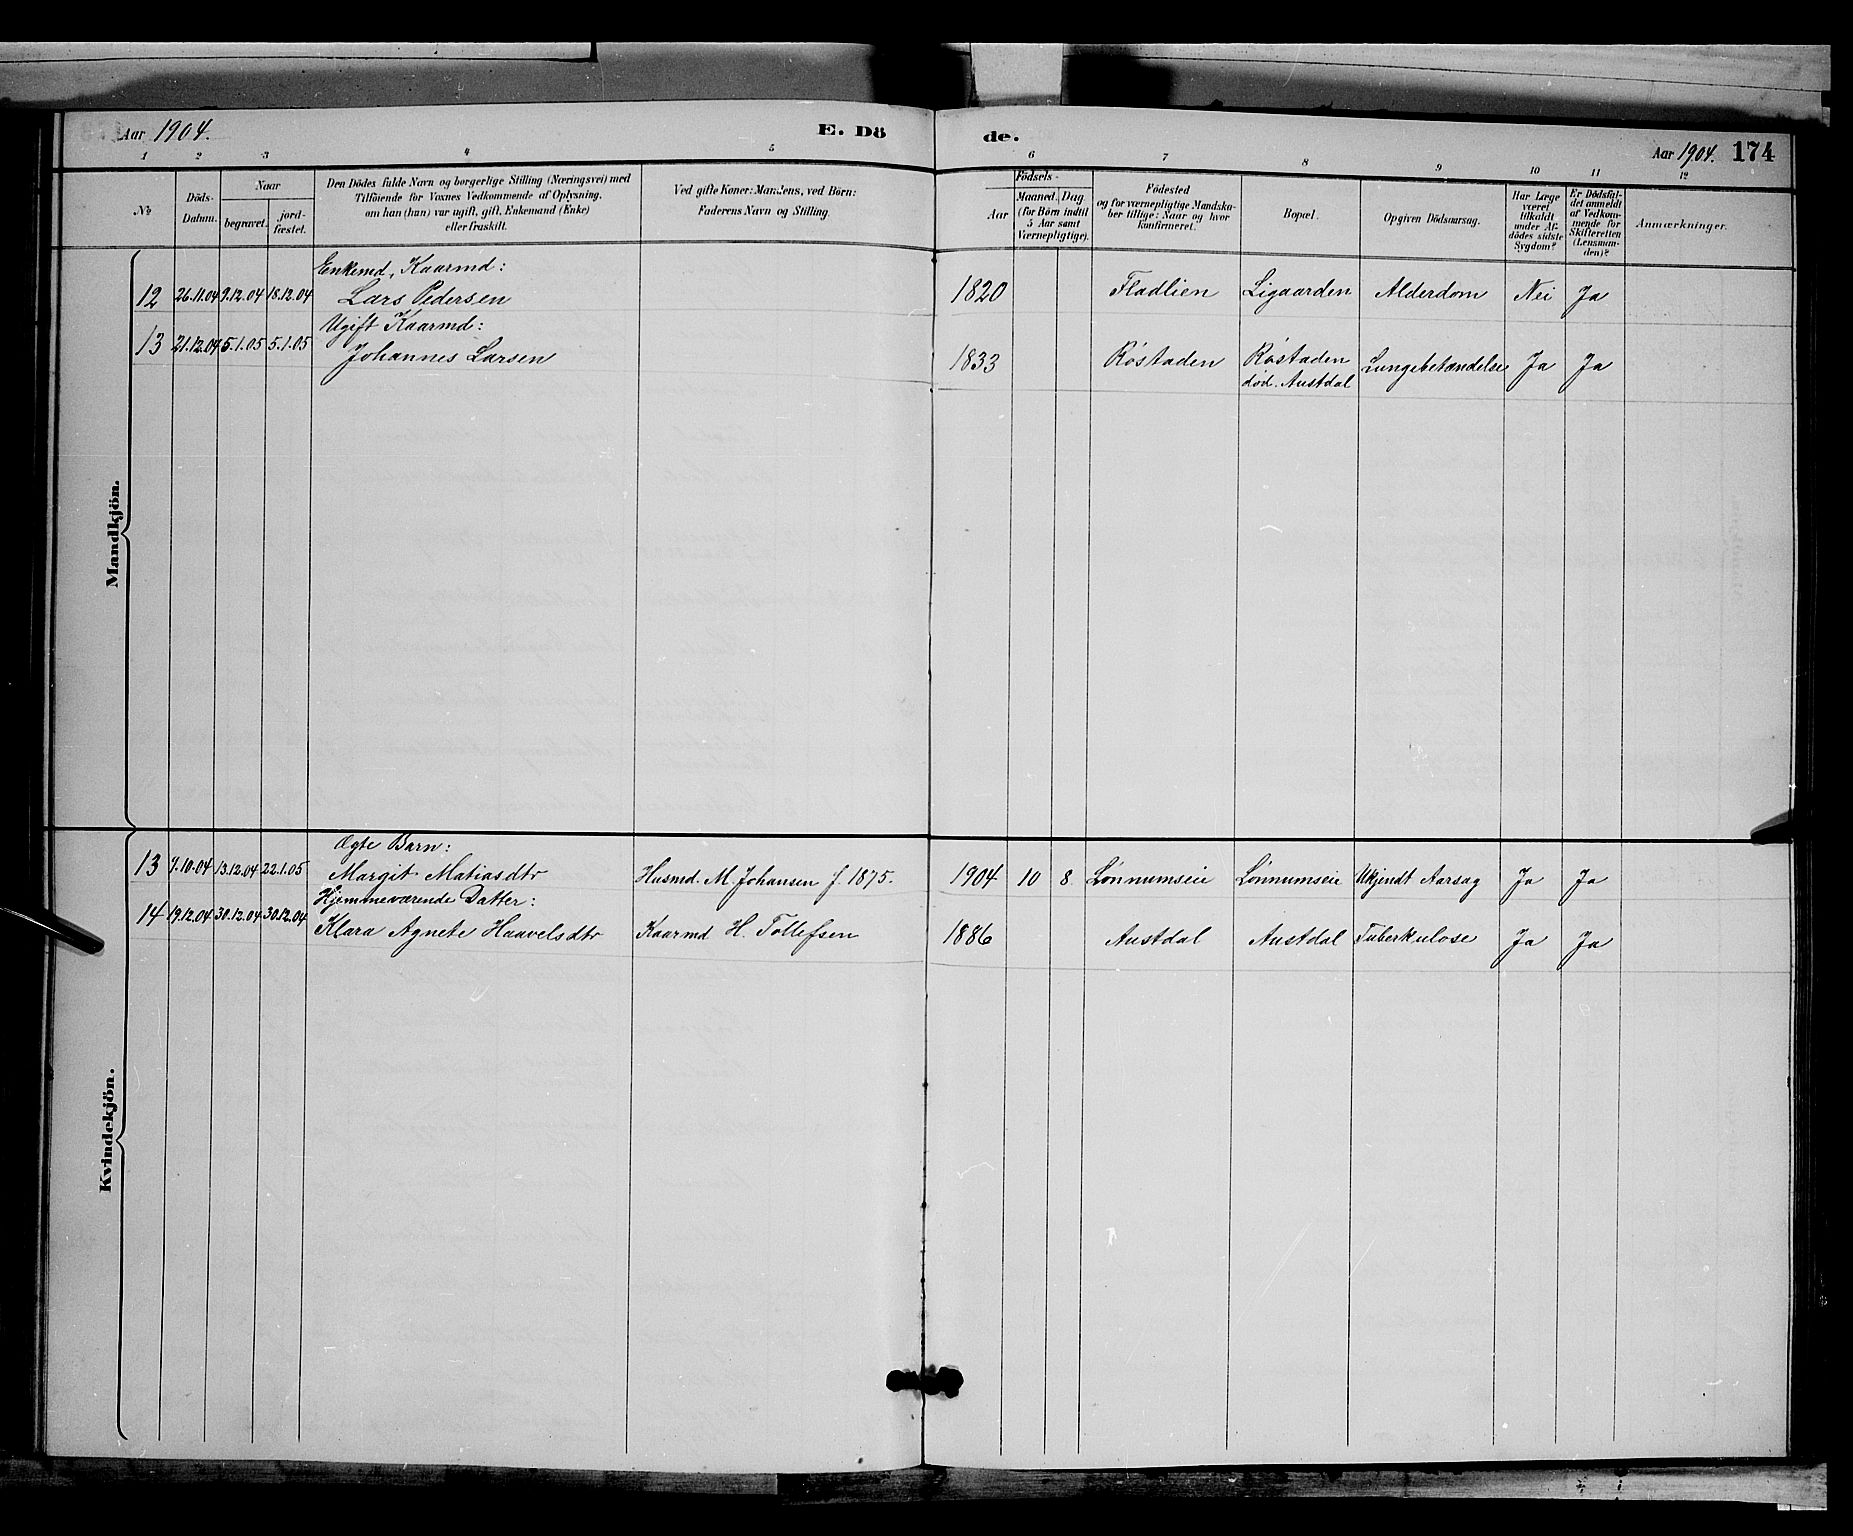 Aar 1904.
E. Dö
de.
Aar 1904. 174
1 2 3 4 5 6 7 8 9 10 11 12
No
Döds-
Datum.
Naar
begravet.
jord-
fæstet.
Den Dödes fulde Navn og borgerlige Stilling (Næringsvei) med
Tilföiende for Voxnes Vedkommende af Oplysning,
om han (hun) var ugift, gift, Enkemand (Enke)
eller fraskilt.
Ved gifte Koner: Mandens, ved Börn:
Faderens Navn og Stilling.
Födsels-
Aar
Maaned. Dag
(for Börn indtil
5 Aar samt
Værnepligtige).
Födested
og for værnepligtige Mandska-
ber tillige: Naar og hvor
konfirmeret.
Bopæl.
Opgiven Dödsaarsag.
Har Læge
været
tilkaldt
under Af-
dödes sidste
Sygdom?
Er Dödsfal-
det anmeldt
af Vedkom-
mende for
Skifteretten
(Lensman-
den)?
Anmærkninger.
Mandkjön.
Enkemd, Kaarmd:
12 26.11.04 9.12.04 18.12.04 Lars Pedersen 1820 Fladlien Ligaarden Alderdom Nei Ja
Ugift Kaarmd:
13 21.12.04 5.1.05 5.1.05 Johannes Larsen 1833 Røstaden Røstaden Lungebetændelse Ja Ja
død. Austdal
Kvindekjön.
Ægte Barn:
13 9.10.04 13.12.04 22.1.05 Margit Matiasdtr Husmd. M Johansen f. 1875. 1904 10 8 Lønnumseie Lønnumseie Ukjendt Aarsag Ja Ja
Hjemmeværende Datter:
14 19.12.04 30.12.04 30.12.04 Klara Agnete Haavelsdtr Kaarmd H. Tollefsen 1886 Austdal Austdal Tuberkulose Ja Ja